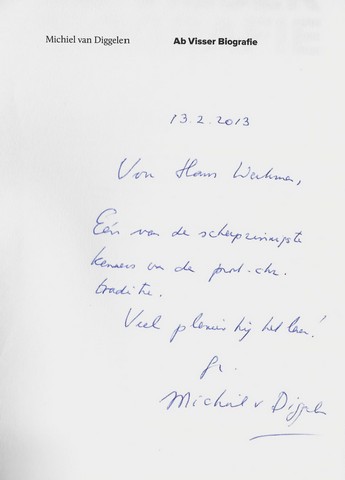 Michiel van Diggelen Ab Visser Biografie
13.2.2013
Voor Hans Werkman,
Eén van de scherpzinnigste
kenners van de prot.-chr.
traditie.
Veel plezier bij het lezen!
Gr.
Michiel v Diggelen